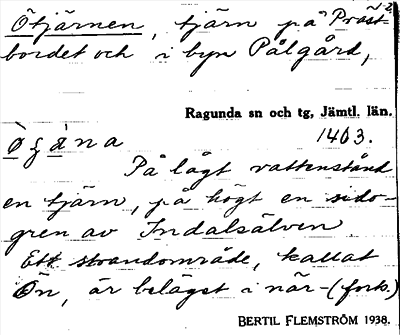 Ötjärnen, tjärn på Präst-
bordet och i byn Pålgård,
Ragunda sn och tg, Jämtl. län.
1403.
På lågt vattenstånd
en tjärn, på högt en sido-
gren av Indalsälven
Ett strandområde, kallat
Ön, är beläget i när-(forts.)
BERTIL FLEMSTRÖM 1938.